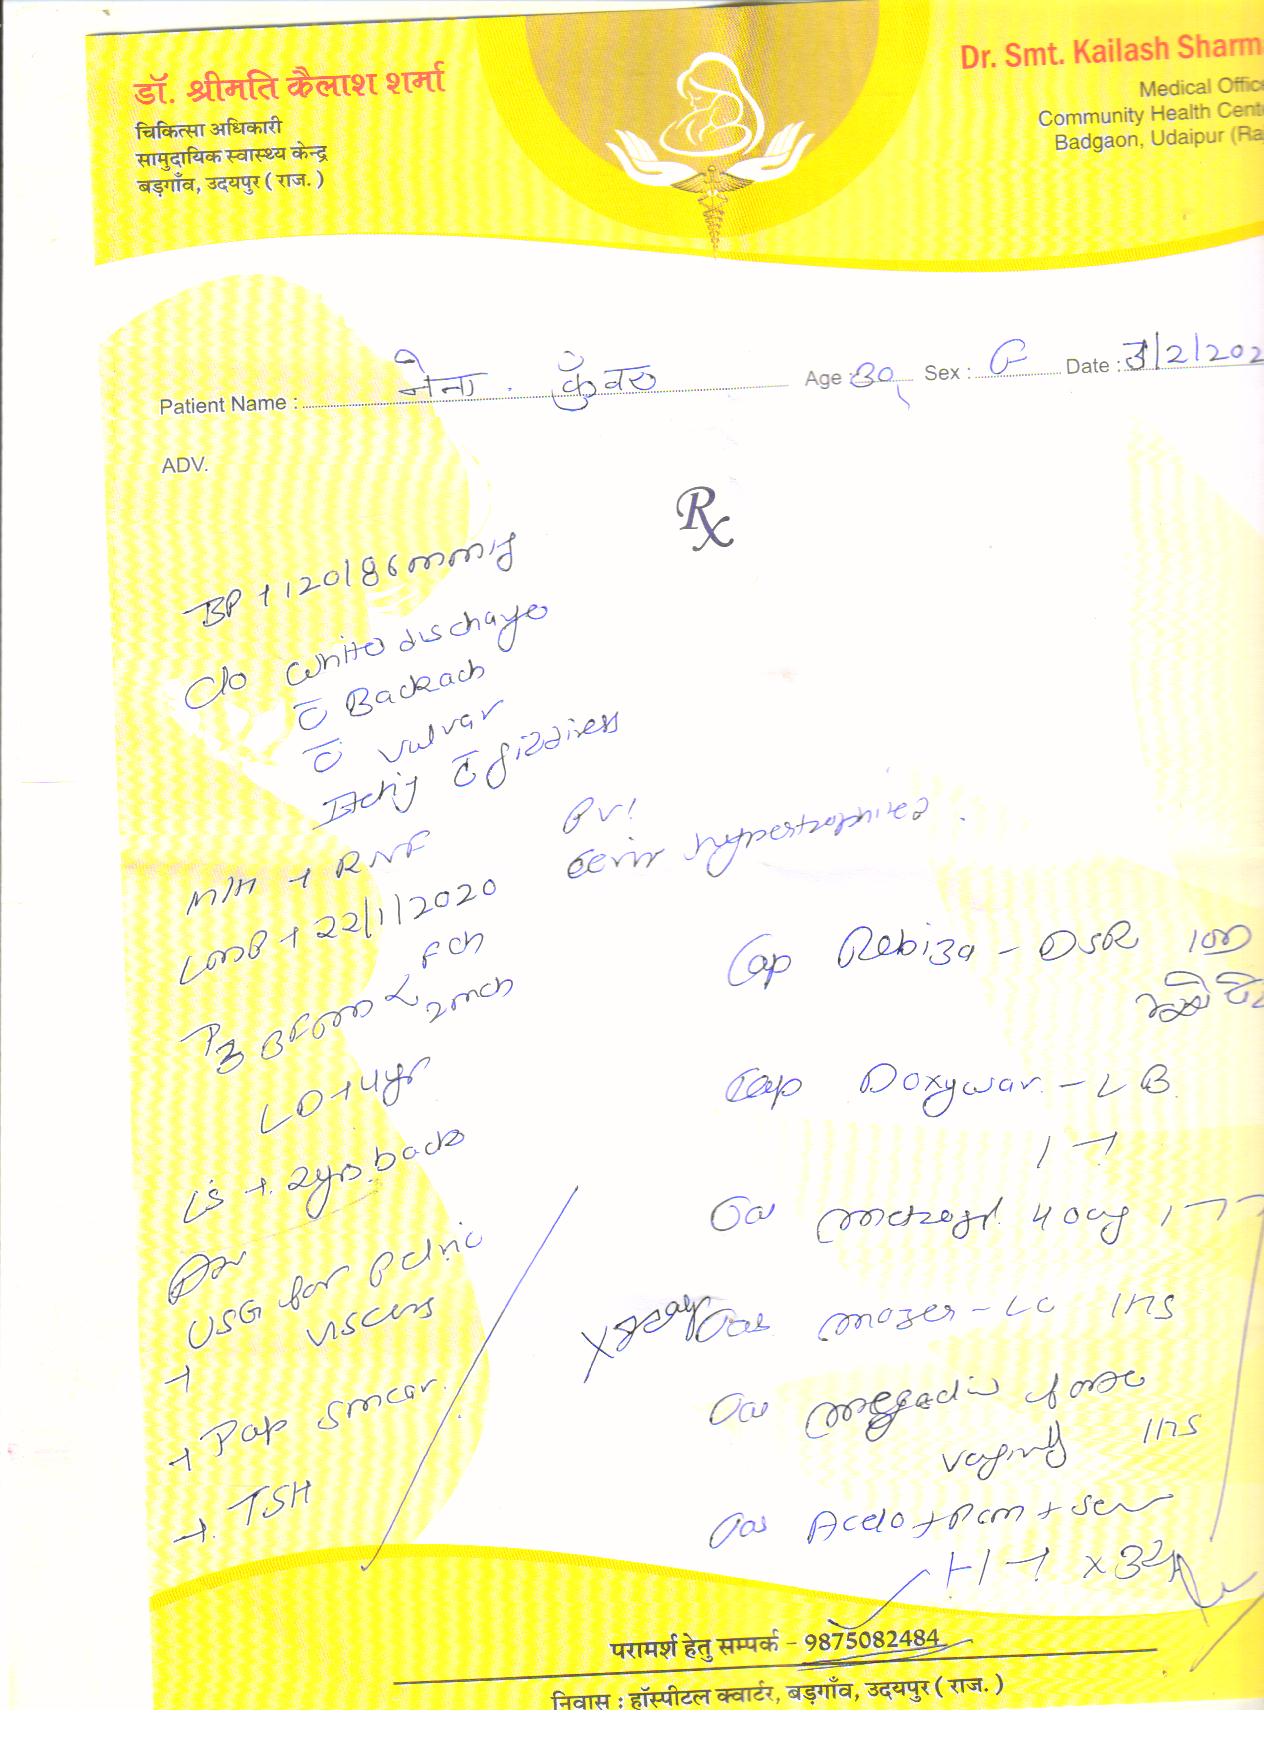 डॉ. श्रीमति कैलाश शर्मा
चिकित्सा अधिकारी
सामुदायिक स्वास्थ्य केन्द्र
बड़गाँव, उदयपुर ( राज. )
Dr. Smt. Kailash Sharm
Medical Offic
Community Health Cent
Badgaon, Udaipur (Ra
Patient Name : नेना कुँवर Age : 30 Sex : F Date : 3/2/202
ADV.
Rx
BP → 120/86 mmHg
C/o White discharge
c̄ Backach
c̄ vulvar
Itching c̄ gizziness
M/H → RNF
LMP → 22/1/2020
PV!
hypertrophied.
P3
Fch
2mch
LD → 4yr
LS → 2yrs back
USG for Pelvic
viscers
→ Pap smear.
→ TSH
Cap Rebiza - DSR 10D
Cap Doxywar - LB
Metrogyl 40mg
X 7day
Mozer - LC 1HS
Megadin forte
vaginally 1HS
Aceclo + Pcm + Ser
परामर्श हेतु सम्पर्क - 9875082484
निवास : हॉस्पीटल क्वार्टर, बड़गाँव, उदयपुर ( राज. )